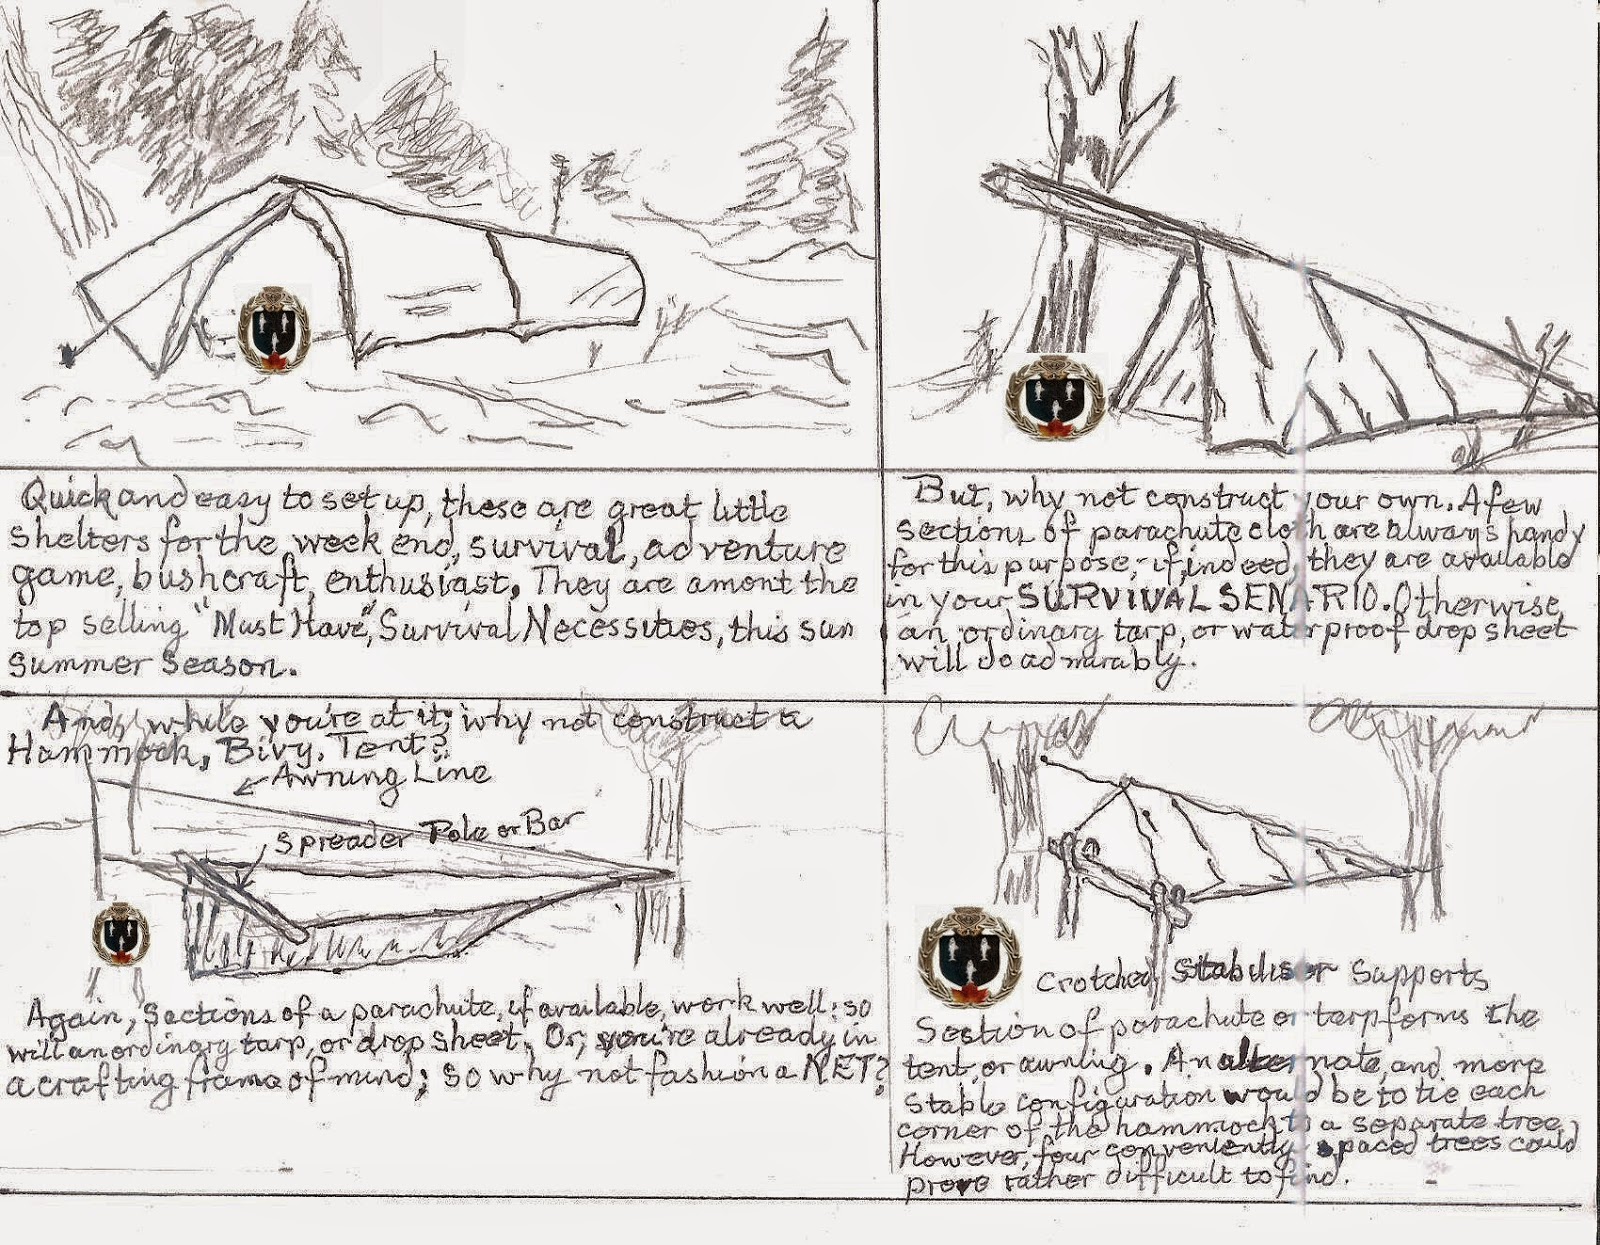 Quick and easy to set up, these are great little
shelters for the week end, survival, adventure
game, bushcraft, enthusiast. They are amont the
top selling "Must Have", Survival Necessities, this sun
summer season.
But, why not construct your own. A few
sections of parachute cloth are always handy
for this purpose; if, indeed, they are available
in your SURVIVAL SENARIO. Otherwise
an ordinary tarp, or waterproof drop sheet
will do admirably.
And, while you're at it; why not construct a
Hammock, Bivy. Tent?
Awning Line
Spreader Pole or Bar
Again, Sections of a parachute, if available, work well: so
will an ordinary tarp, or drop sheet. Or, you're already in
a crafting frame of mind; so why not fashion a NET?
Crotched Stabiliser Supports
Section of parachute or tarp forms the
tent, or awning. An alternate, and more
stable configuration would be to tie each
corner of the hammock to a separate tree
However, four conveniently spaced trees could
prove rather difficult to find.